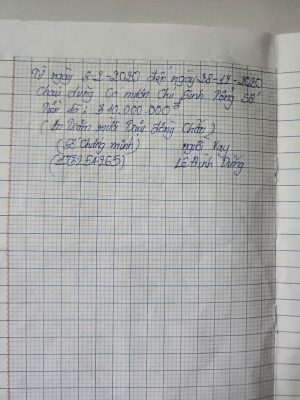 Từ ngày 8-2-2020 đến ngày 28-12-2020
Cháu dũng Có mượn Chú Sinh Tổng Số
Tiền là: 310.000.000đ
(Ba Trăm mười Triệu đồng Chẵn)
(Số Chứng minh) người Vay
Lê Đình Dũng